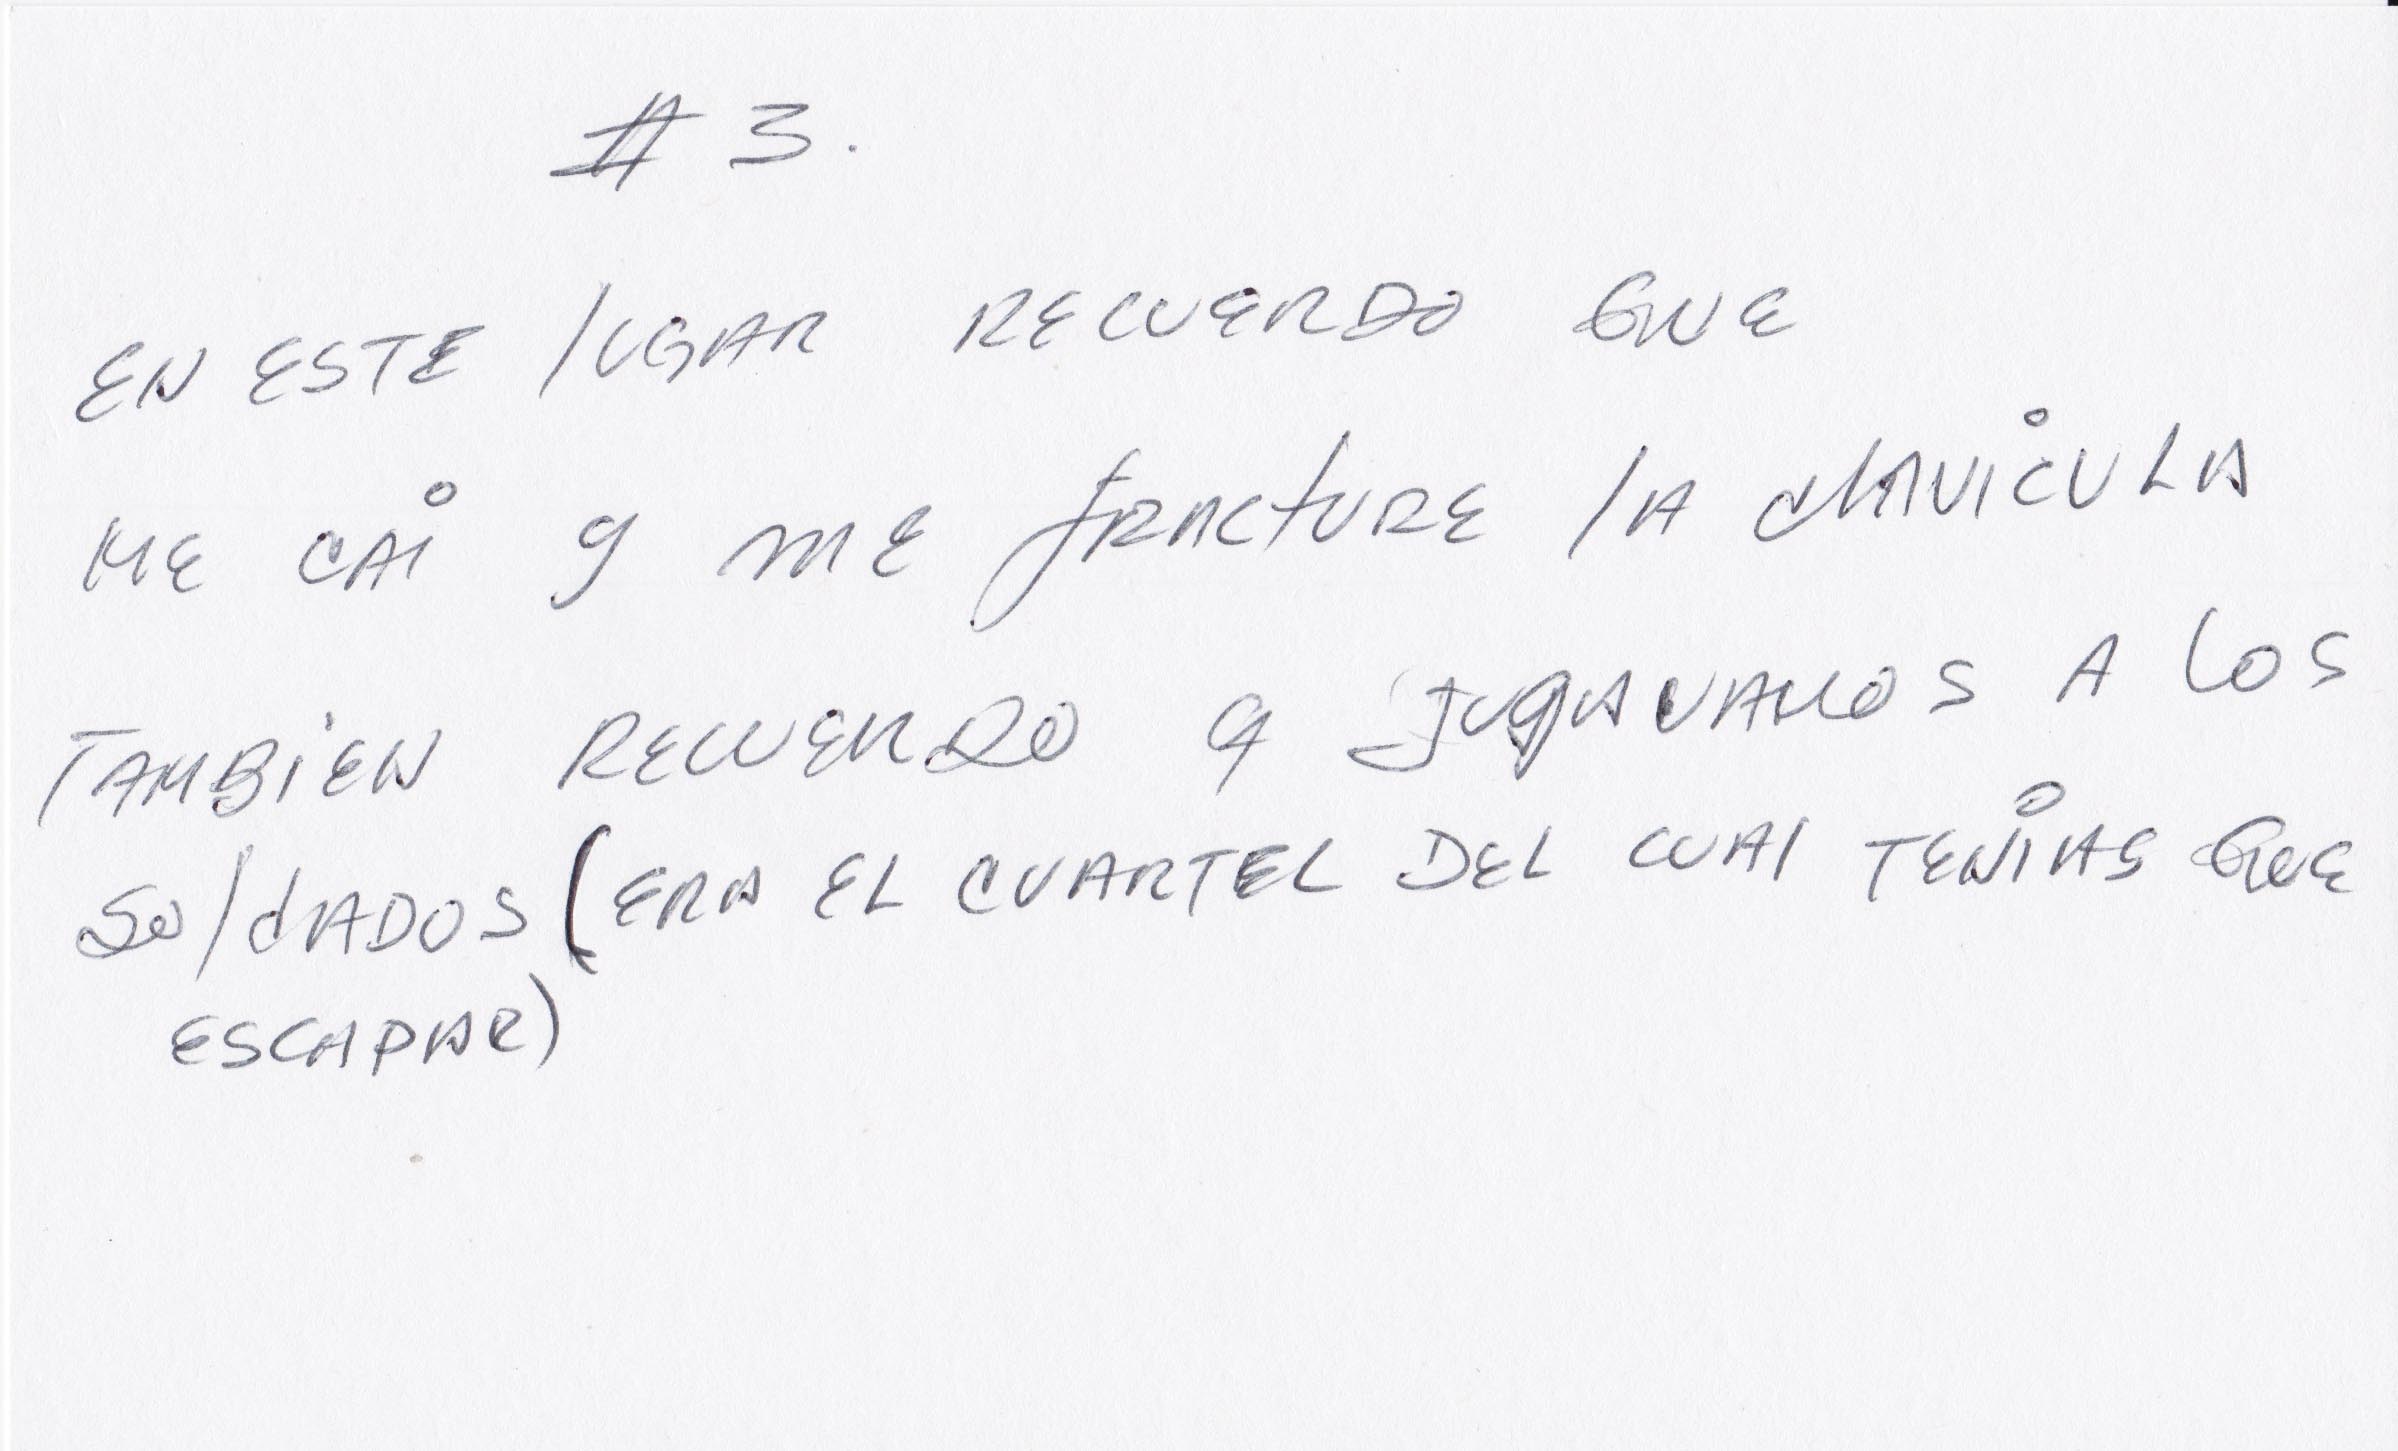 # 3.
EN ESTE lUGAR RECUERDO QUE
ME CAÍ y ME fRACtURE lA clAVÍCULA
TAMBIEN RECUERDO q JUgAVAMOS A LOS
SOldADOS (ERA EL CUARTEL DEL CUAl TENÍAS QUE
ESCAPAR)